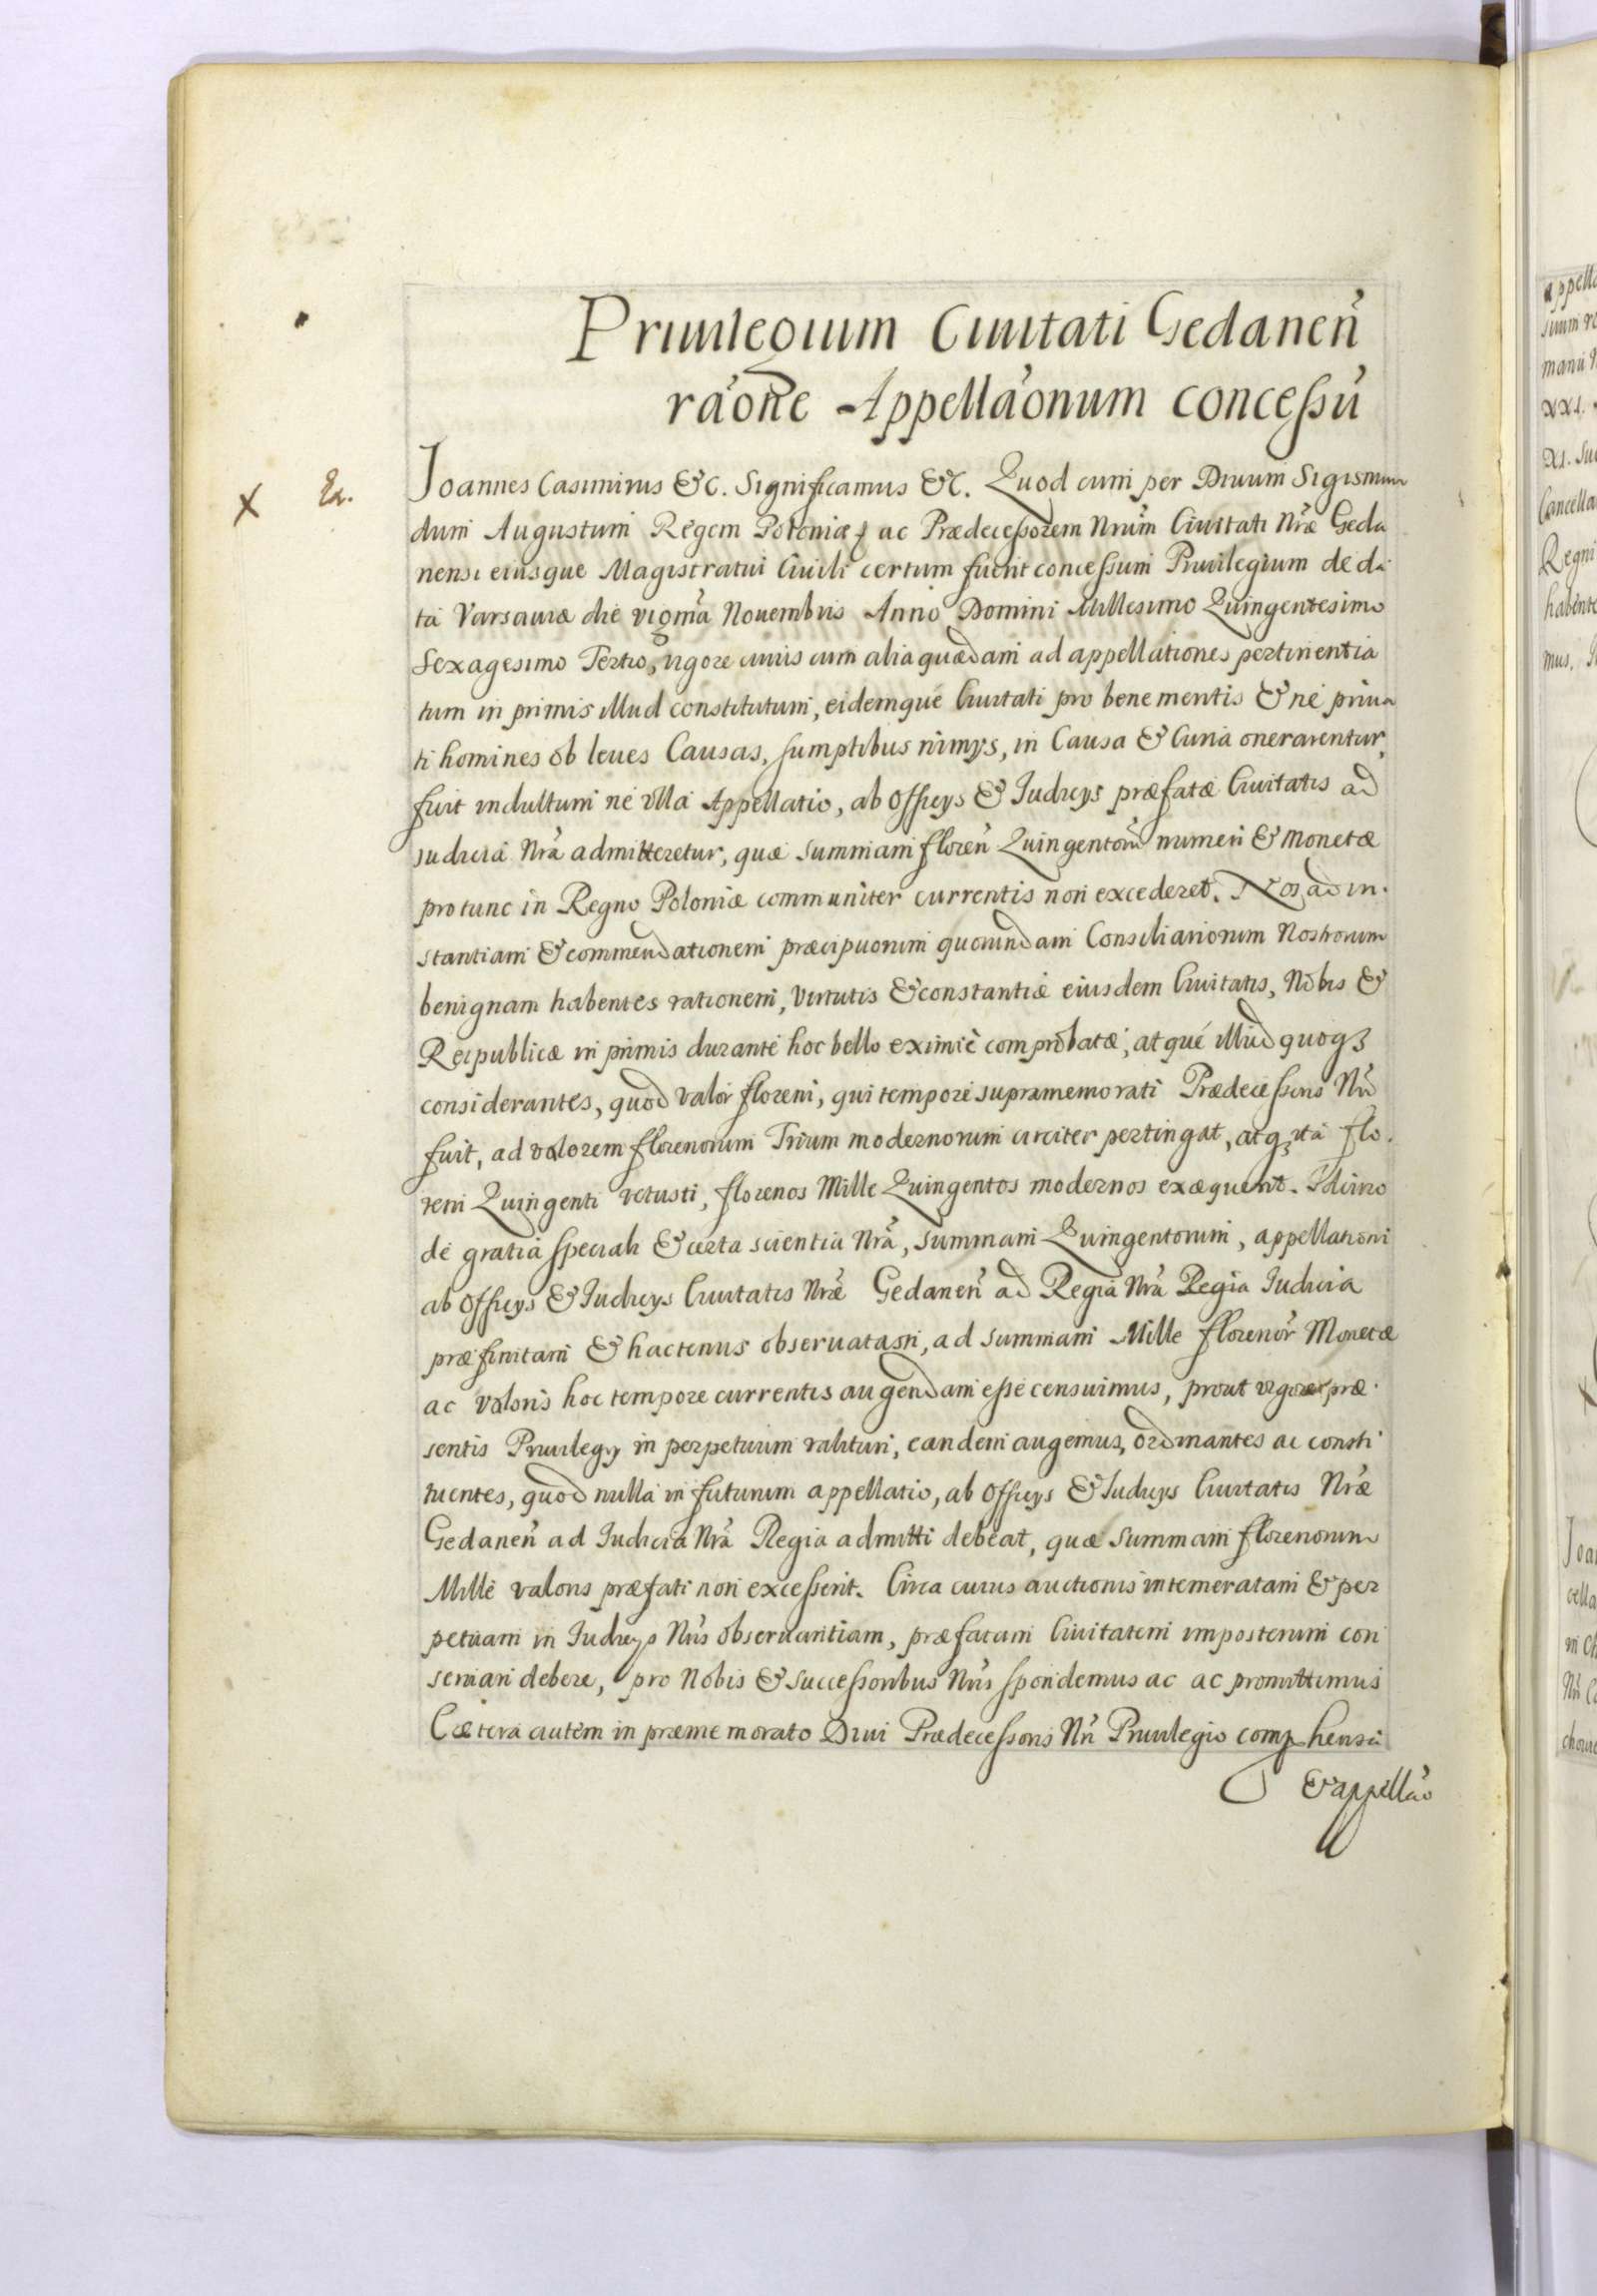 Priuilegium Ciuitati Gedanen̉
ra̓one Appella̓onum concessu̓
X Ex.
Joannes Casimirus &c. Significamus &c. Quod cum per Diuum Sigismun
dum Augustum Regem Poloniæ ac Prædecessorem Nrum Ciuitati Nræ Geda
nensi eiusque Magistratui Ciuili certum fuerit concessum Priuilegium de da
ta Varsauiæ die vigma Nouembris Anno Domini Millesimo Quingentesimo
Sexagesimo Tertio, vigore cuius cum alia quædam ad appellationes pertinentia
tum in primis illud constitutum, eidemque Ciuitati pro bene meritis & ne priua
ti homines ob leues Causas, sumptibus nimys, in Causa & Curia onerarentur,
fuit indultum ne vlla Appellatio, ab Officys & Judicys præfatæ Ciuitatis ad
iudicia Nra admitteretur, quæ summam floren Quingentoru numeri & Monetæ
pro tunc in Regno Poloniæ communiter currentis non excederet. Nos ad in-
stantiam & commendationem præcipuorum quorundam Consiliariorum Nostrorum
benignam habentes rationem, virtutis & constantiæ eiusdem Ciuitatis, Nobis &
Reipublicæ in primis durante hoc bello eximiè comprobatæ, atque illud quoqꝫ
considerantes, quod valor floreni, qui tempore supramemorati Prædecessoris Nri
fuit, ad valorem florenorum Trium modernorum circiter pertingat, atqꝫ ita flo-
reni Quingenti vetusti, florenos Mille Quingentos modernos exæquent. Idcirco
de gratia speciali & certa scientia Nra, summam Quingentorum, appellationi
ab Officys & Judicys Ciuitatis Nræ Gedanen ad Regia Nra Regia Iudicia
præfinitam & hactenus obseruatam, ad summam Mille florenor Monetæ
ac valoris hoc tempore currentis augendam esse censuimus, prout vigore præ-
sentis Priuilegy in perpetuum valituri, eandem augemus, ordinantes ac consti
tuentes, quod nulla in futurum appellatio, ab Officys & Iudicys Ciuitatis Nræ
Gedanen ad Iudicia Nra Regia admitti debeat, quæ summam florenorum
Mille valoris præfati non excesserit. Circa cuius auctionis intemeratam & per
petuam in Iudicys Nris obseruantiam, præfatam Ciuitatem imposterum con
seruari debere, pro Nobis & Successoribus Nris spondemus ac ac promittimus
Cætera autem in præmemorato Diui Prædecessoris Nri Priuilegio comp̱hensa
& appella̓o